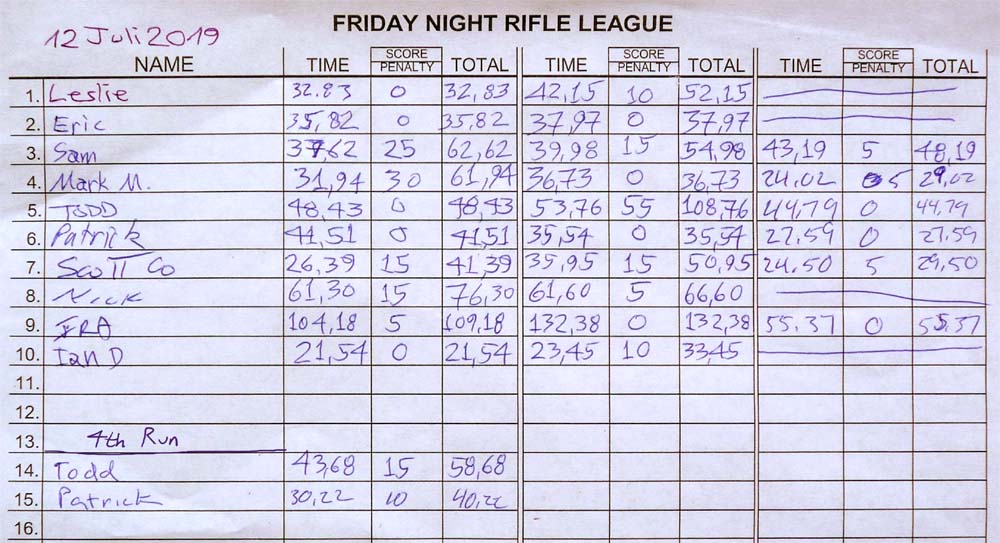 FRIDAY NIGHT RIFLE LEAGUE
12 Juli 2019
NAME TIME SCORE PENALTY TOTAL TIME SCORE PENALTY TOTAL TIME SCORE PENALTY TOTAL
1. Leslie 32.83 0 32,83 42,15 10 52,15
2. Eric 35,82 0 35,82 37,97 0 37,97
3. Sam 37,62 25 62,62 39,98 15 54,98 43,19 5 48,19
4. Mark M. 31,94 30 61,94 36,73 0 36,73 24.02 5 29,02
5. TODD 48,43 0 48,43 53,76 55 108,76 44,79 0 44,79
6. Patrick 41,51 0 41,51 35,54 0 35,54 27.59 0 27.59
7. Scott Co 26,39 15 41,39 35,95 15 50,95 24.50 5 29,50
8. Nick 61,30 15 76,30 61,60 5 66,60
9. IRA 104,18 5 109,18 132,38 0 132,38 55.37 0 55.37
10. Ian D 21,54 0 21,54 23,45 10 33,45
11.
12.
13. 4th Run
14. Todd 43,68 15 58,68
15. Patrick 30,22 10 40,22
16.